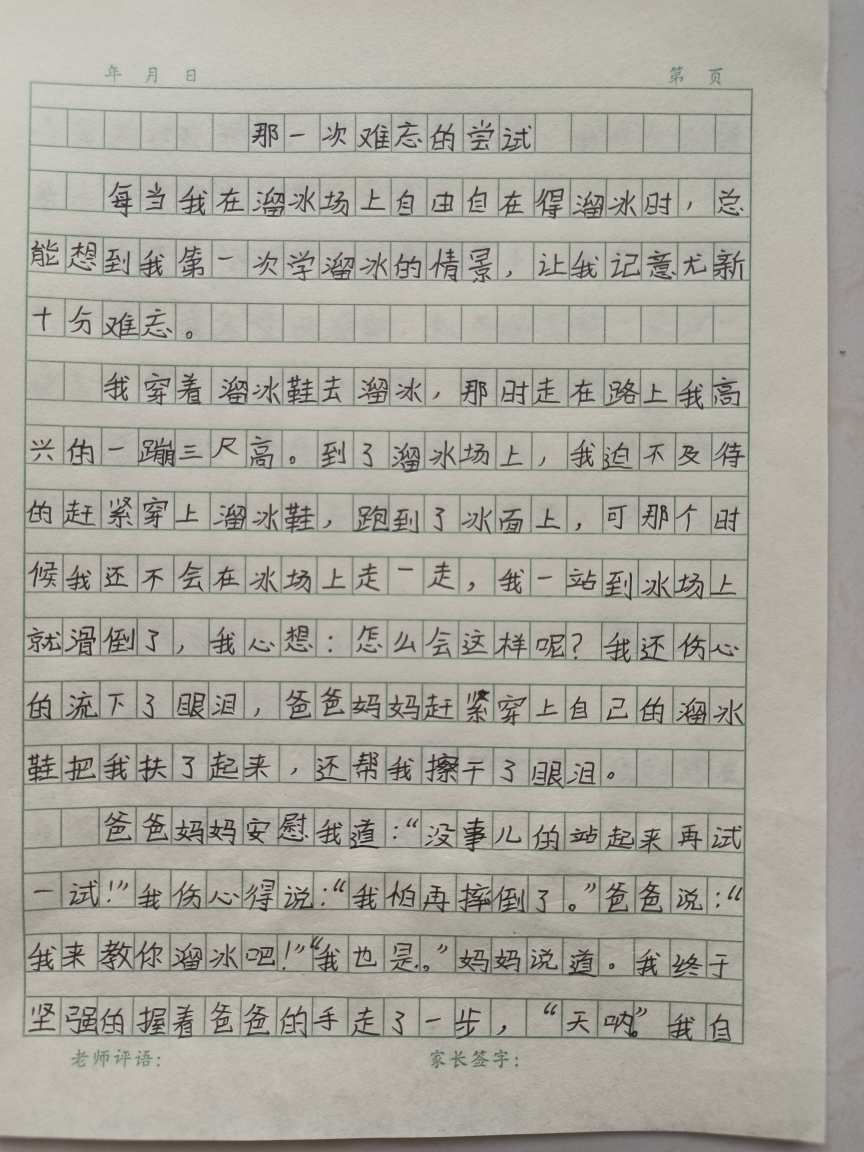 年 月 日 第 页
那一次难忘的尝试
每当我在溜冰场上自由自在得溜冰时，总
能想到我第一次学溜冰的情景，让我记意尤新
十分难忘。
我穿着溜冰鞋去溜冰，那时走在路上我高
兴的一蹦三尺高。到了溜冰场上，我迫不及待
的赶紧穿上溜冰鞋，跑到了冰面上，可那个时
候我还不会在冰场上走一走，我一站到冰场上
就滑倒了，我心想：怎么会这样呢？我还伤心
的流下了眼泪，爸爸妈妈赶紧穿上自己的溜冰
鞋把我扶了起来，还帮我擦干了眼泪。
爸爸妈妈安慰我道：“没事儿的站起来再试
一试！”我伤心得说：“我怕再摔倒了。”爸爸说：“
我来教你溜冰吧！”“我也是。”妈妈说道。我终于
坚强的握着爸爸的手走了一步，“天呐。”我自
老师评语： 家长签字：